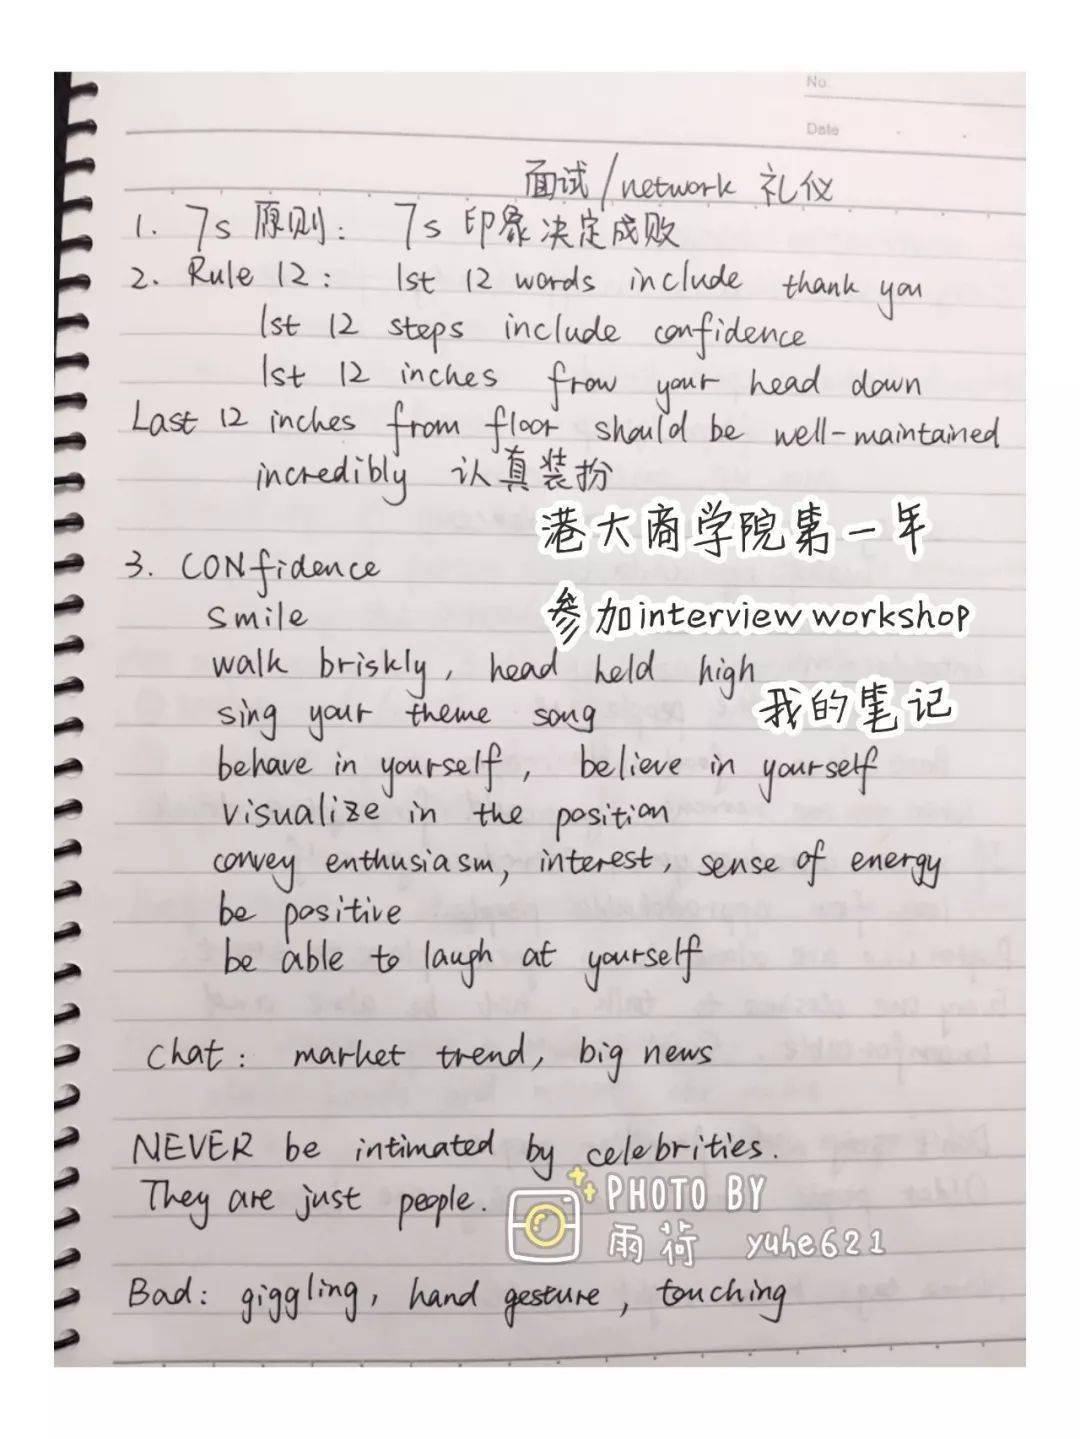 No.
Date
面试/network 礼仪
1. 7s 原则: 7s 印象决定成败
2. Rule 12: 1st 12 words include thank you
1st 12 steps include confidence
1st 12 inches frow your head down
Last 12 inches from floor should be well-maintained
incredibly 认真装扮
港大商学院第一年
3. CONfidence
smile
参加interview workshop
walk briskly, head held high
我的笔记
sing your theme song
behave in yourself, believe in yourself
visualize in the position
convey enthusiasm, interest, sense of energy
be positive
be able to laugh at yourself
Chat: market trend, big news
NEVER be intimated by celebrities.
They are just people.
PHOTO BY
雨荷 yuhe621
Bad: giggling, hand gesture, touching